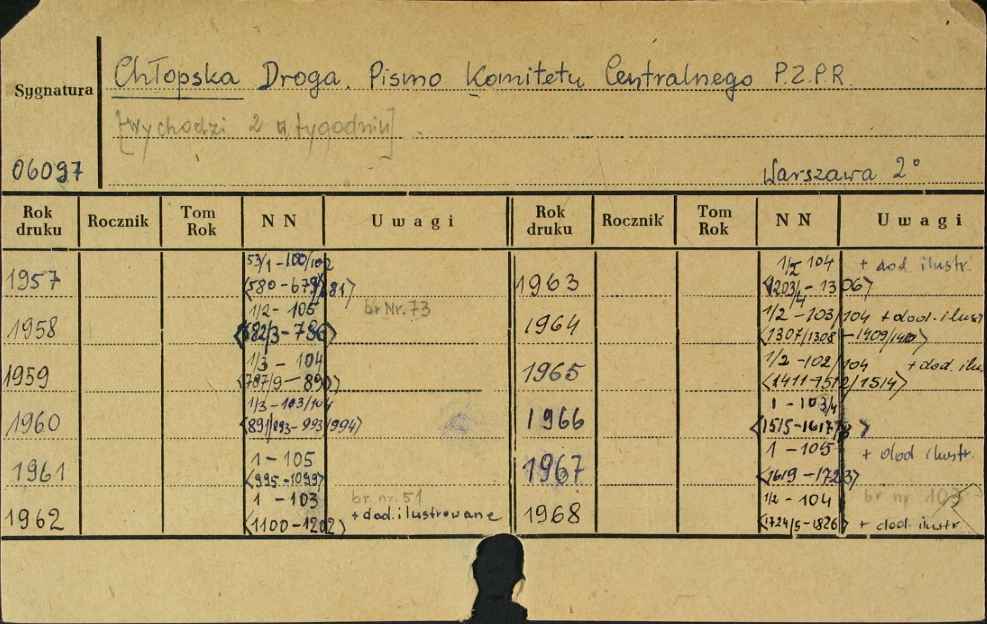 Sygnatura
Chłopska Droga. Pismo Komitetu Centralnego P.Z.P.R.
[wychodzi 2 x tygodniu].
06097
Warszawa 2°
Rok druku Rocznik Tom Rok NN Uwagi Rok druku Rocznik Tom Rok NN Uwagi
1957 53/1 - 100/102
<580 - 679/681>
1958 1/2 - 105 br Nr. 73
<682/3 - 786>
1959 1/3 - 104
<787/9 - 890>
1960 1/3 - 103/104
<891/893 - 993/994>
1961 1 - 105
<995 - 1099>
1962 1 - 103 br. nr. 51
<1100 - 1202> + dod. ilustrowane
1963 1/2 104 + dod ilustr.
<1203/4 - 1306>
1964 1/2 - 103/104 + dod. ilust
<1307/1308 - 1409/1410>
1965 1/2 - 102/104 + dod. ilu
<1411 - 1512/1514>
1966 1 - 103/4
<1515 - 1617/8>
1967 1 - 105 + dod ilustr.
<1619 - 1723>
1968 1/2 - 104 br nr 103
<1724/5 - 1826> + dod. ilustr